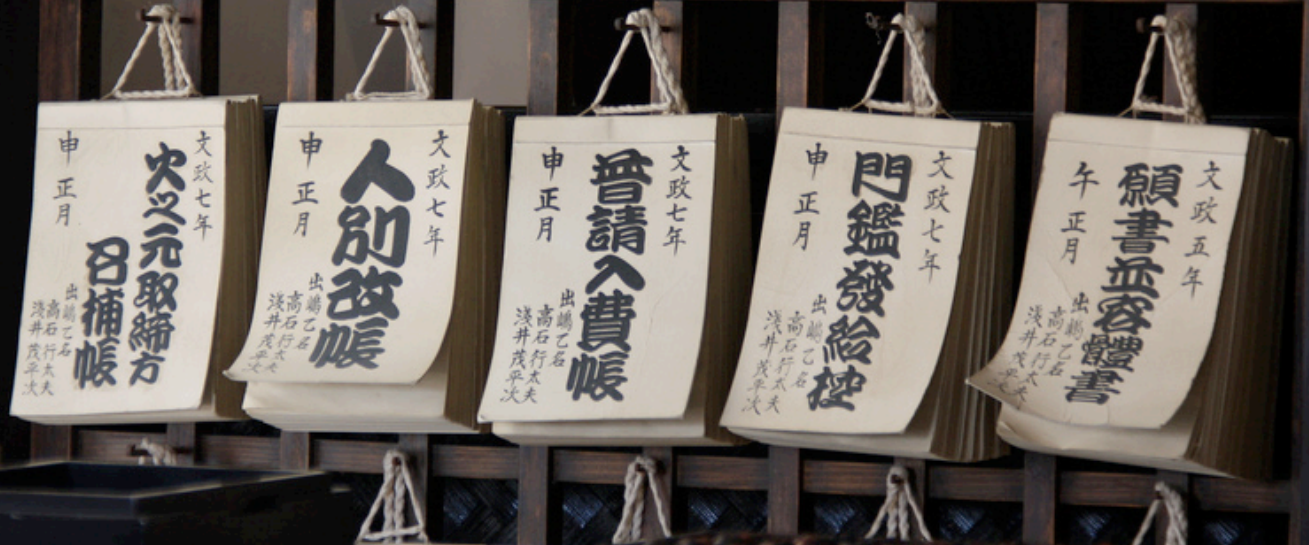 文政七年
火之元取締方
召捕帳
申正月
出嶋乙名
高石行太夫
淺井茂平次
文政七年
人別改帳
申正月
出嶋乙名
高石行太夫
淺井茂平次
文政七年
普請入費帳
申正月
出嶋乙名
高石行太夫
淺井茂平次
文政七年
門鑑發給控
申正月
出嶋乙名
高石行太夫
淺井茂平次
文政五年
願書並容體書
午正月
出嶋乙名
高石行太夫
淺井茂平次